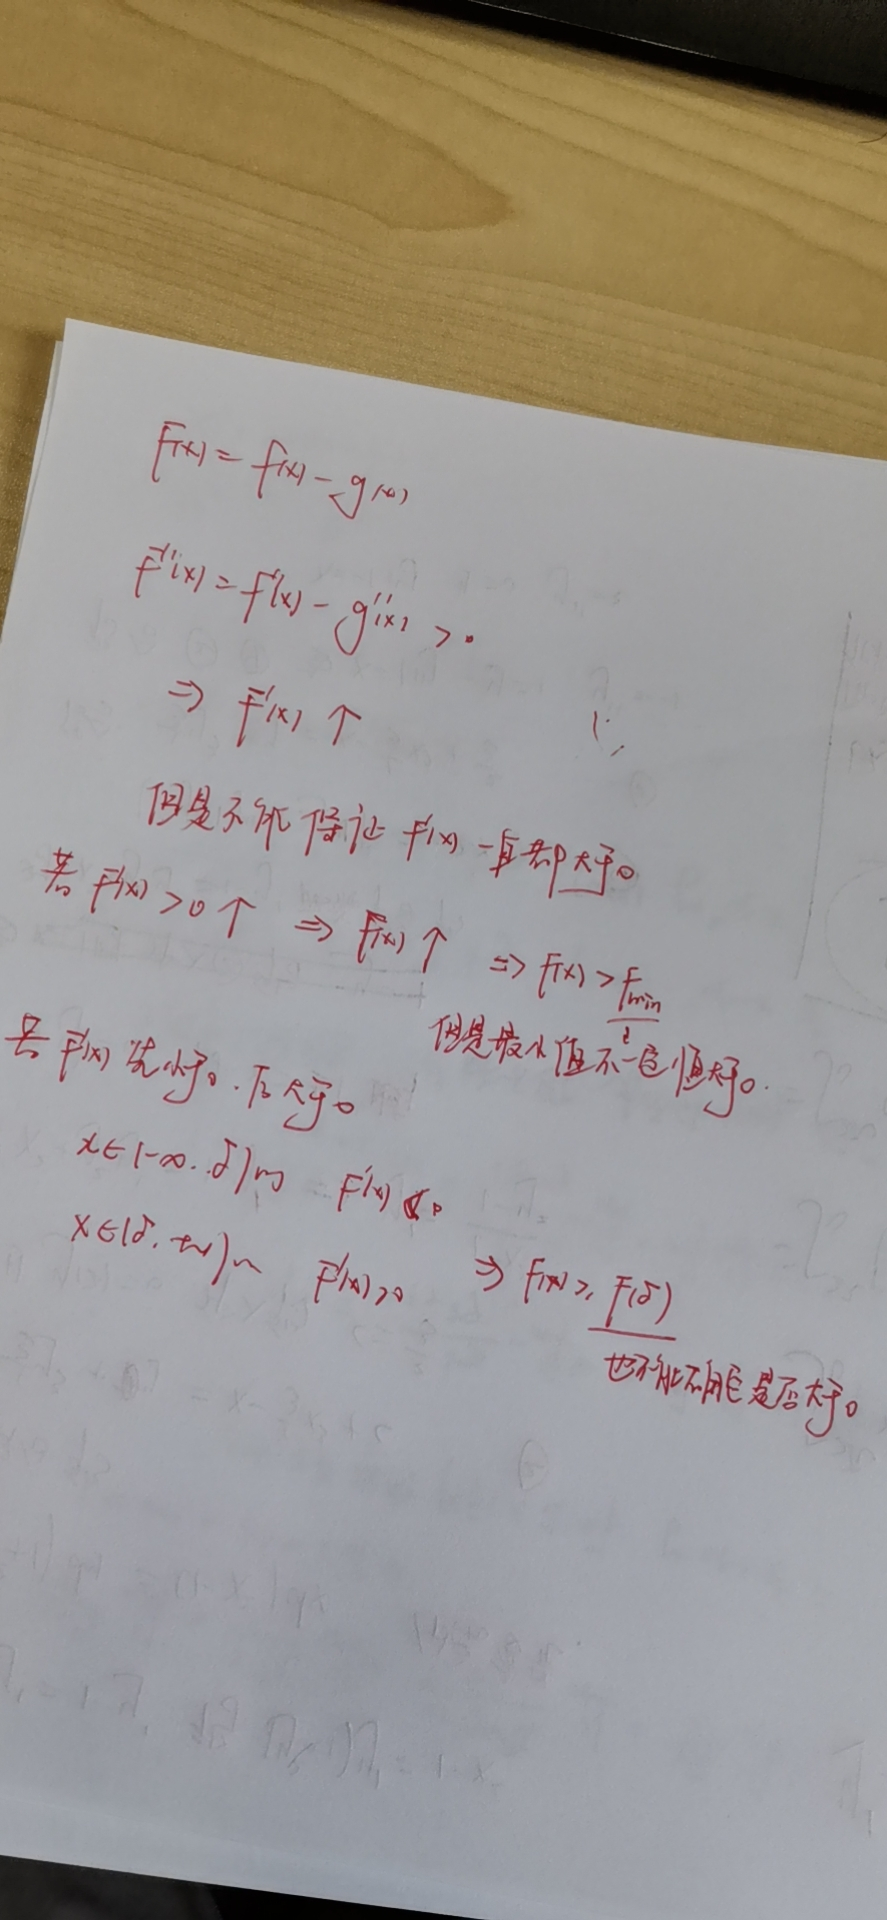 F(x) = f(x) - g(x)
F''(x) = f''(x) - g''(x) > 0
⇒ F'(x) ↑
但是不能保证 F'(x) 一直都大于0
若 F'(x) > 0 ↑ ⇒ F(x) ↑ ⇒ F(x) > Fmin
但是最小值不一定恒大于0.
若 F'(x) 先小于0. 后大于0
x∈(-∞. δ) 时 F'(x) < 0
x∈(δ. +∞) 时 F'(x) > 0 ⇒ F(x) ≥ F(δ)
也不能确定是否大于0